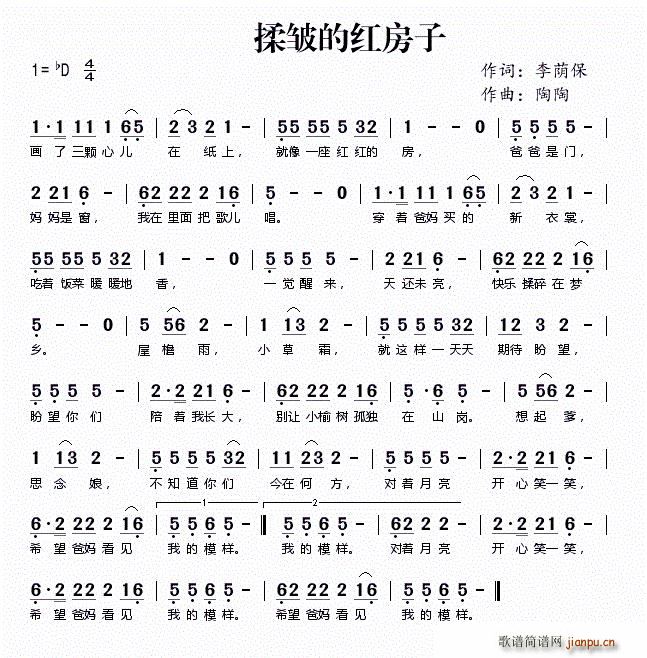 揉皱的红房子
1= ♭D 4/4
作词：李荫保
作曲：陶陶
1·1 11 1 65 | 2 3 2 1 - | 55 55 5 32 | 1 - - 0 | 5 5 5 5 - |
画了三颗心儿 在 纸上， 就像一座红红的 房， 爸爸是门，
2 21 6 - | 62 22 2 16 | 5 - - 0 | 1·1 11 1 65 | 2 3 2 1 - |
妈妈是窗， 我在里面把歌儿 唱。 穿着爸妈买的 新 衣裳，
55 55 5 32 | 1 - - 0 | 5 5 5 5 - | 2 21 6 - | 62 22 2 16 |
吃着饭菜暖暖地 香， 一觉醒来， 天还未亮， 快乐揉碎在梦
5 - - 0 | 5 56 2 - | 1 13 2 - | 5 5 5 5 32 | 12 3 2 - |
乡。 屋檐雨， 小草霜， 就这样一天天 期待盼望，
5 5 5 5 - | 2·2 21 6 - | 62 22 2 16 | 5 ·6 5 - | 5 56 2 - |
盼望你们 陪着我长大， 别让小榆树孤独 在山岗。 想起爹，
1 13 2 - | 5 5 5 5 32 | 2 2 23 2 - | 5 5 5 5 - | 2·2 21 6 - |
思念娘， 不知道你们 今在何方， 对着月亮 开心笑一笑，
1 2
6·2 22 2 16 | 5 5 6 5 - 5 - | 5 5 6 5 5 - | 62 2 2 - | 2·2 21 6 - |
希望爸妈看见 我的模样。 我的模样。 对着月亮 开心笑一笑，
6·2 22 2 16 | 5 5 6 5 5 - | 62 22 2 16 | 5 5 6 5 - |
希望爸妈看见 我的模样。 希望爸妈看见 我的模样。
歌谱简谱网
jianpu.cn